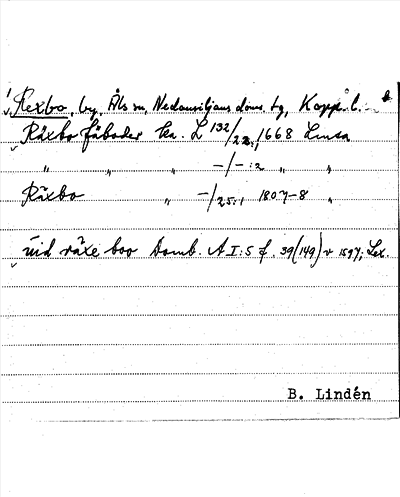 Rexbo, by, Åls sn, Nedansiljans doms. tg, Kopp. l.
Räxbo fäbodar ka. L 132/22:1, 1668 Lmsa
" " " -/- :2 " "
Räxbo " -/25:1 1807-8 "
uid räxe boo Domb. A I:5 f. 39(149) v 1597; Lex.
B. Lindén